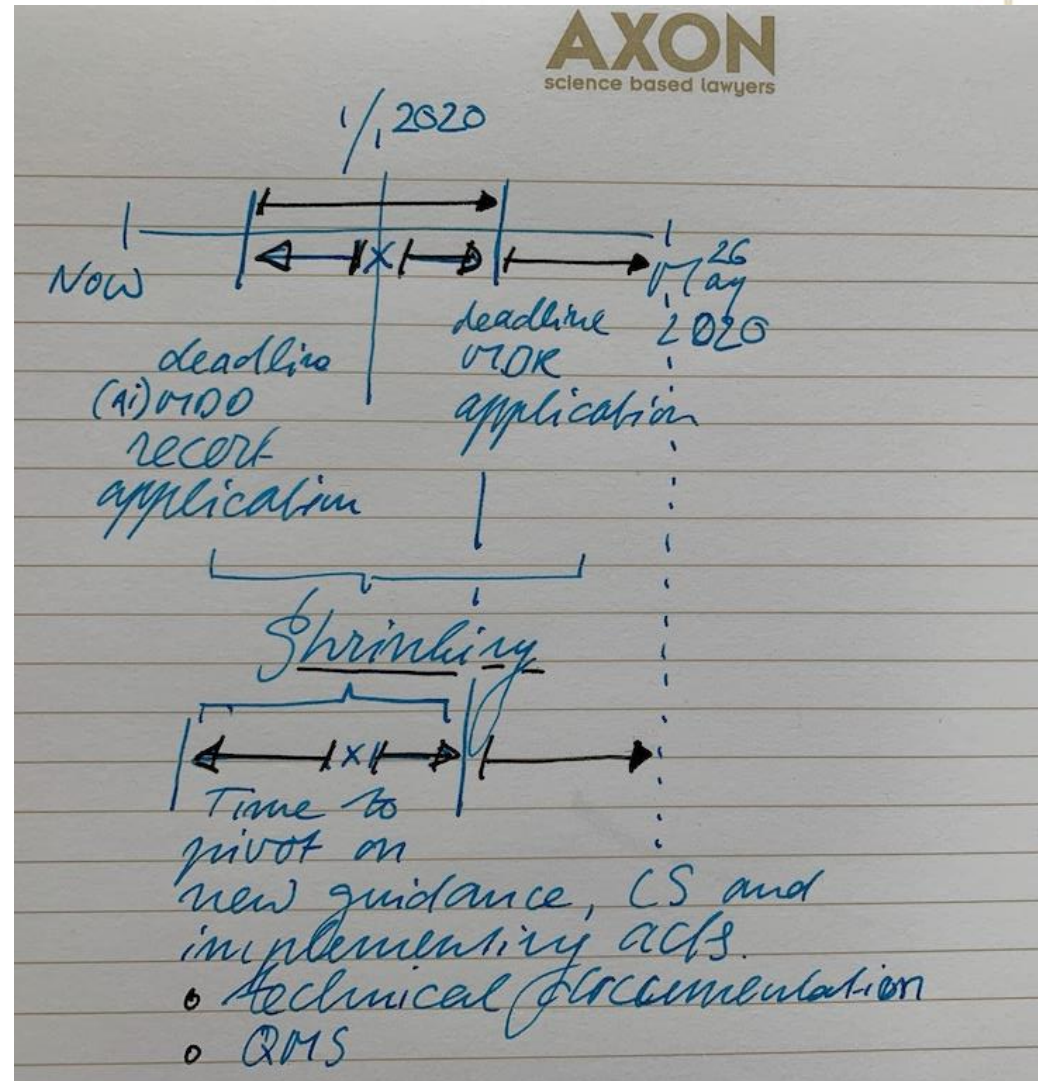 AXON
science based lawyers
1/1 2020
Now
26
May
2020
deadline
(Ai)MDD
recert
application
deadline
MDR
application
Shrinking
Time to
pivot on
new guidance, CS and
implementing acts.
technical documentation
QMS